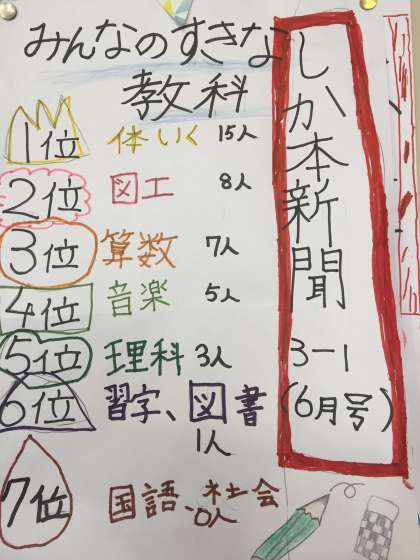 しか本新聞
3-1
(6月号)
みんなのすきな
教科
1位 体いく 15人
2位 図工 8人
3位 算数 7人
4位 音楽 5人
5位 理科 3人
6位 習字、図書
1人
7位 国語、社会
0人